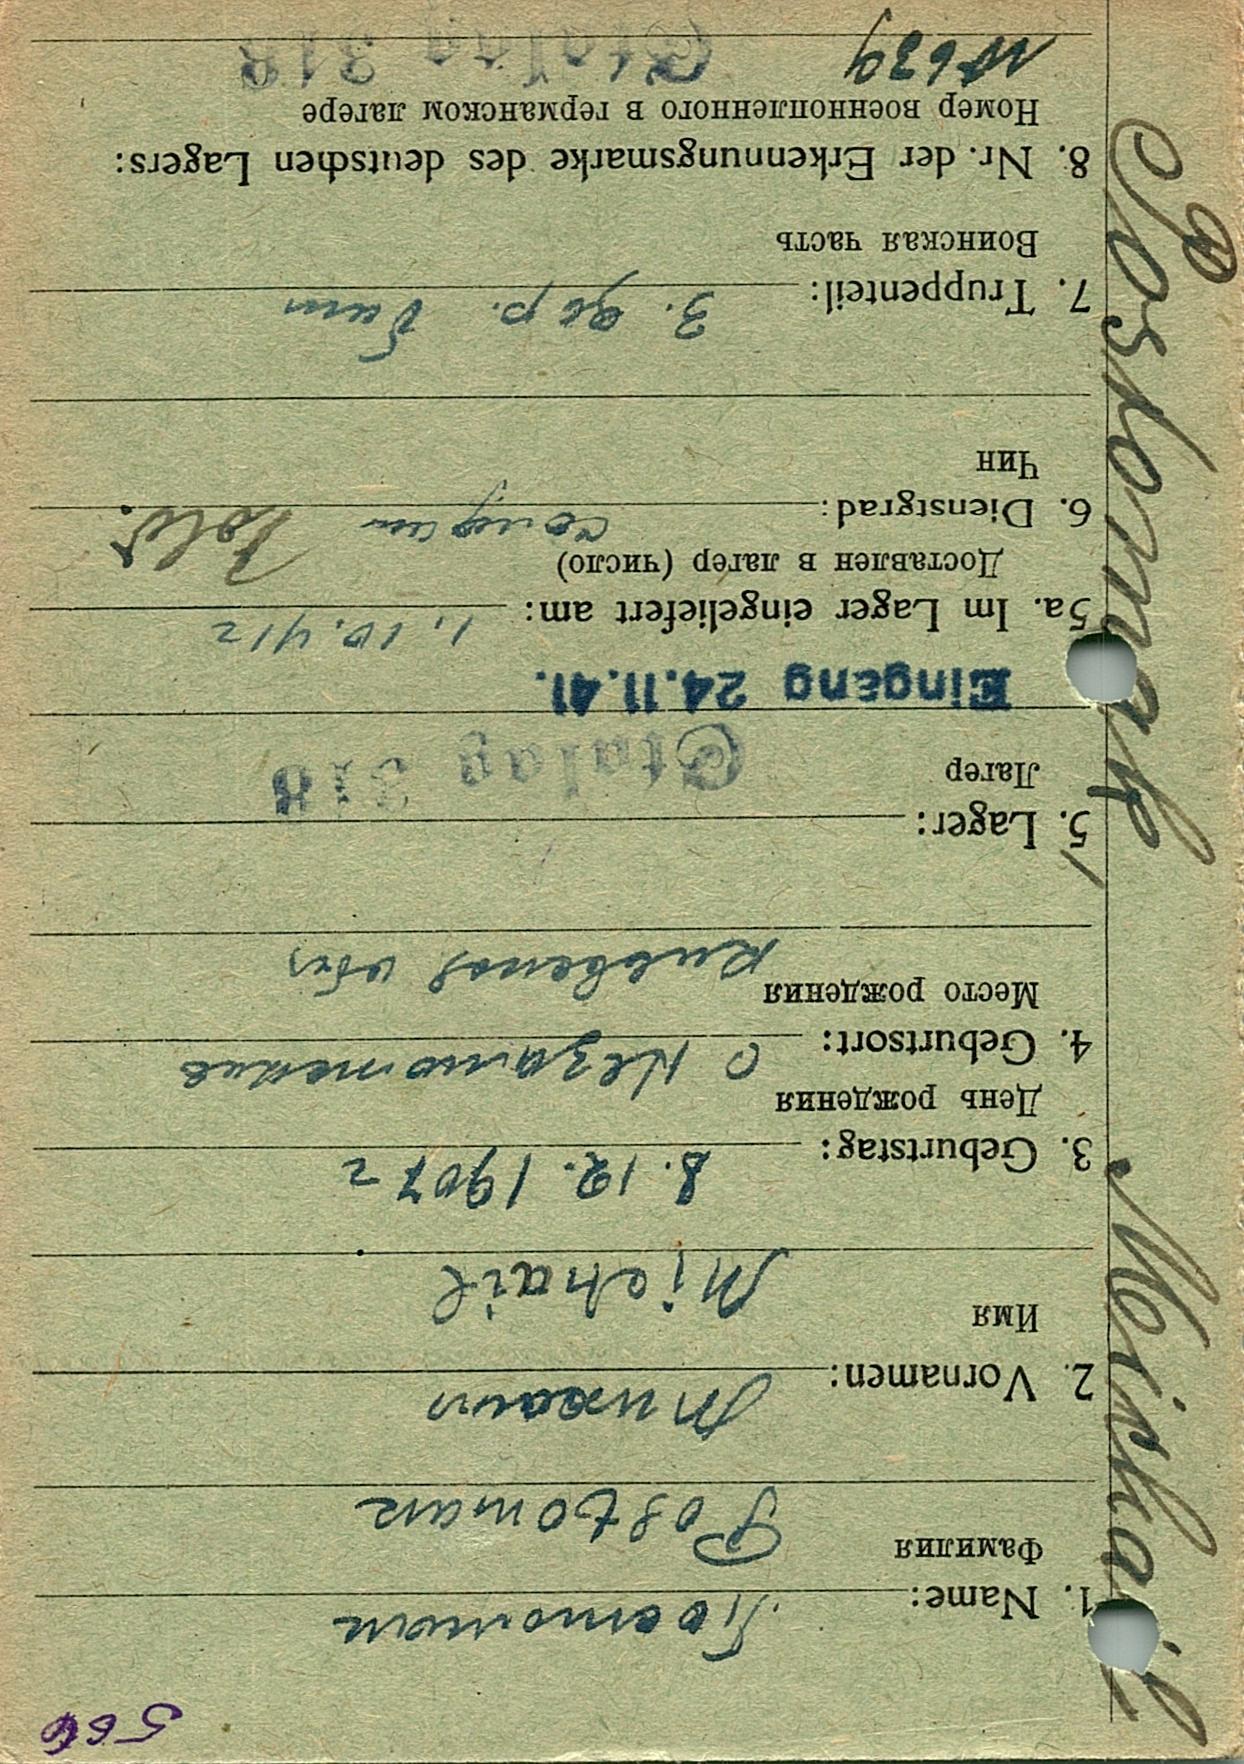 566
1. Name: Постомак
Фамилия Postomak
2. Vornamen: Михаил
Имя Michail
3. Geburtstag: 8.12.1907 г
День рождения
4. Geburtsort: с
Место рождения
5. Lager:
Лагер Stalag 318
Eingang 24.11.41.
5a. Im Lager eingeliefert am: 1.10.41 г
Доставлен в лагер (число)
6. Dienstgrad: солдат Sold.
Чин
7. Truppenteil: 3.
Воинская часть
8. Nr. der Erkennungsmarke des deutschen Lagers:
Номер военнопленного в германском лагере
Stalag 318
Michail